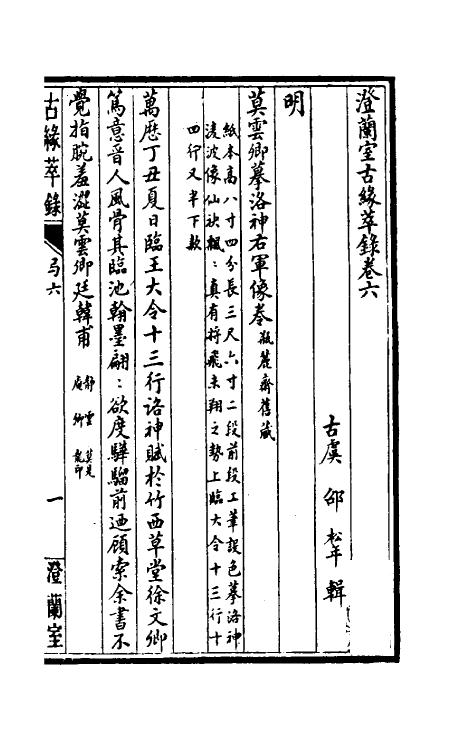 澄蘭室古緣萃錄卷六
古虞 邵松年 輯
明
莫雲卿摹洛神右軍像卷 瓶麓齋舊藏
紙本高八寸四分長三尺六寸二段前段工筆設色摹洛神
淩波像仙袂飄〻真有將飛未翔之勢上臨大令十三行十
四行又半下款
萬歷丁丑夏日臨王大令十三行洛神賦於竹西草堂徐文卿
篤意晉人風骨其臨池翰墨翩〻欲度驊騮前迺顧索余書不
覺指腕羞澀莫雲卿廷韓甫
靜雲
庵
古緣萃錄
卷六
一
澄蘭室